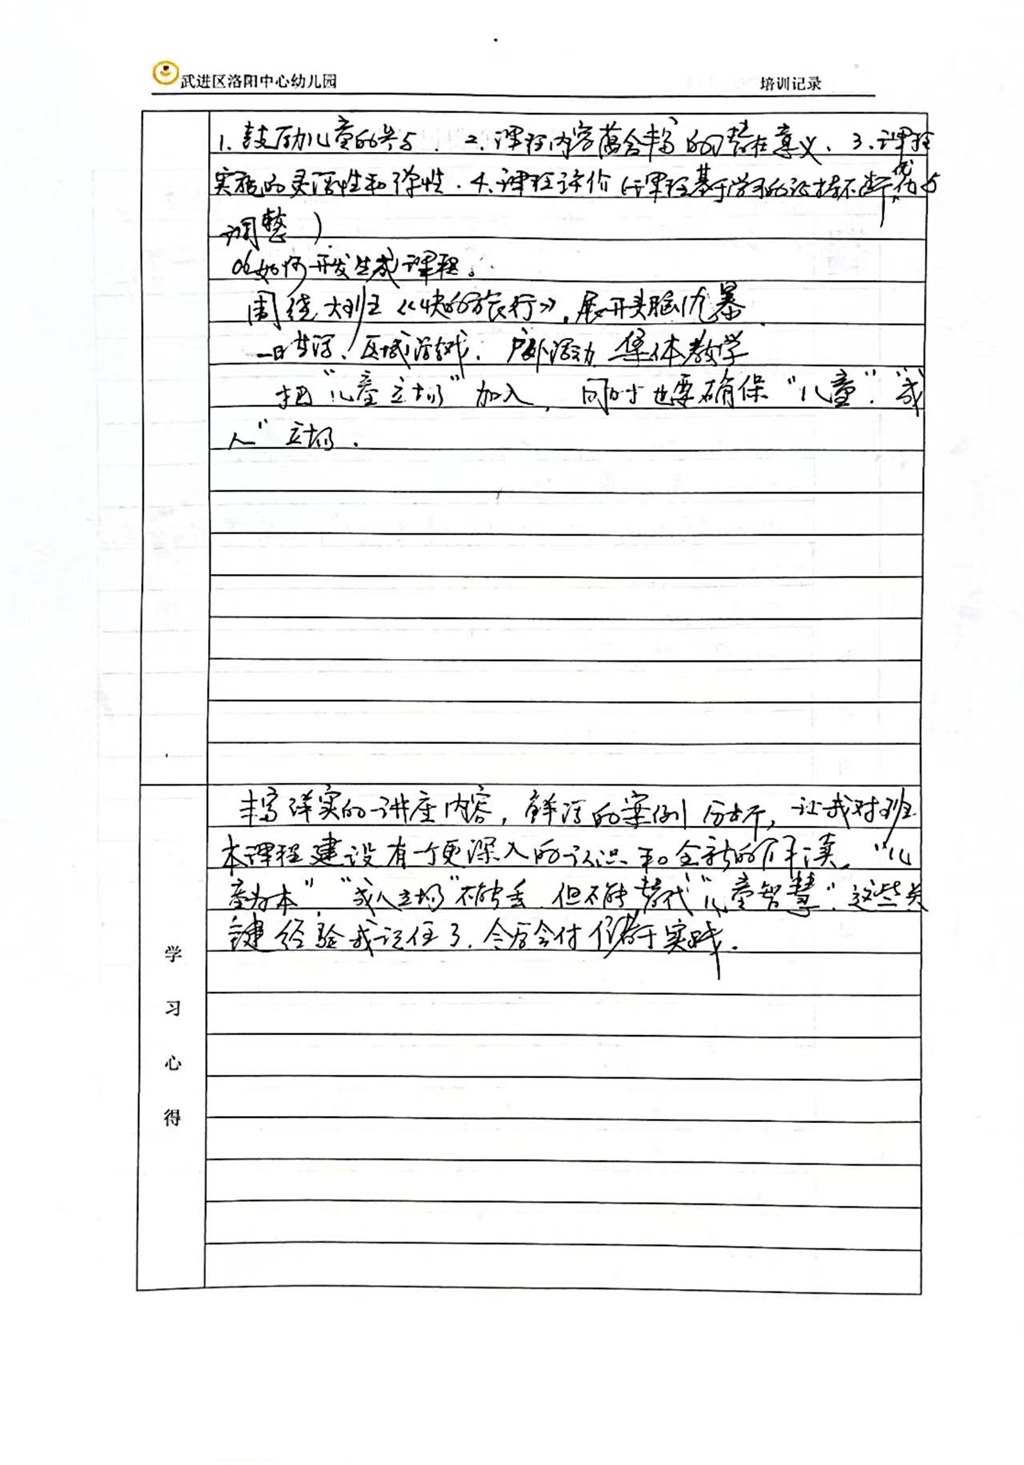 武进区洛阳中心幼儿园
培训记录
1. 鼓励儿童的参与. 2. 课程内容蕴含丰富的潜在意义. 3. 课程
实施的灵活性和弹性. 4. 课程评价(课程基于学习的证据不断优化与
调整)
如何开发生成课程。
围绕大班《快的旅行》,展开头脑风暴
一日生活、区域游戏、户外活动 集体教学
把"儿童立场"加入, 同时也要确保"儿童"."成
人"立场.
学习心得
丰富详实的讲座内容, 鲜活的案例分析, 让我对班
本课程建设有一个更深入的认识和全新的解读. "儿
童为本", "成人立场"不能丢, 但不能替代"儿童智慧". 这些关
键经验我记住了, 今后会付诸于实践.